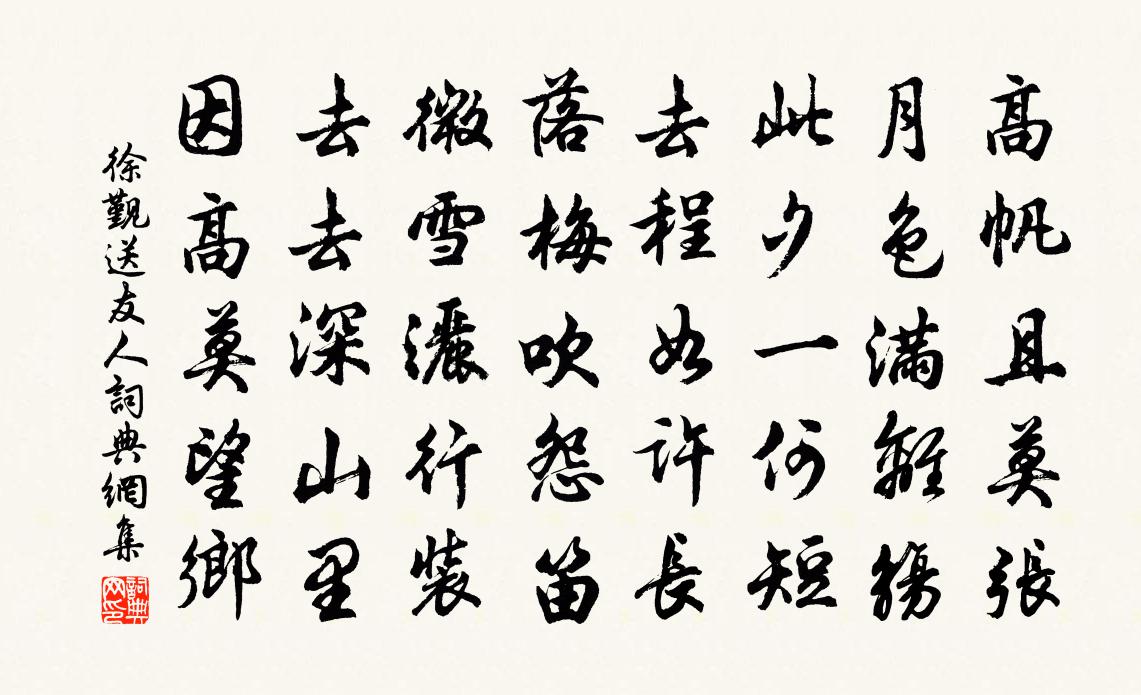 高帆且莫張
月色滿離觴
此夕一何短
去程如許長
落梅吹怨笛
微雪灑行裝
去去深山里
因高莫望鄉
徐觀送友人詞典網集
詞典网印